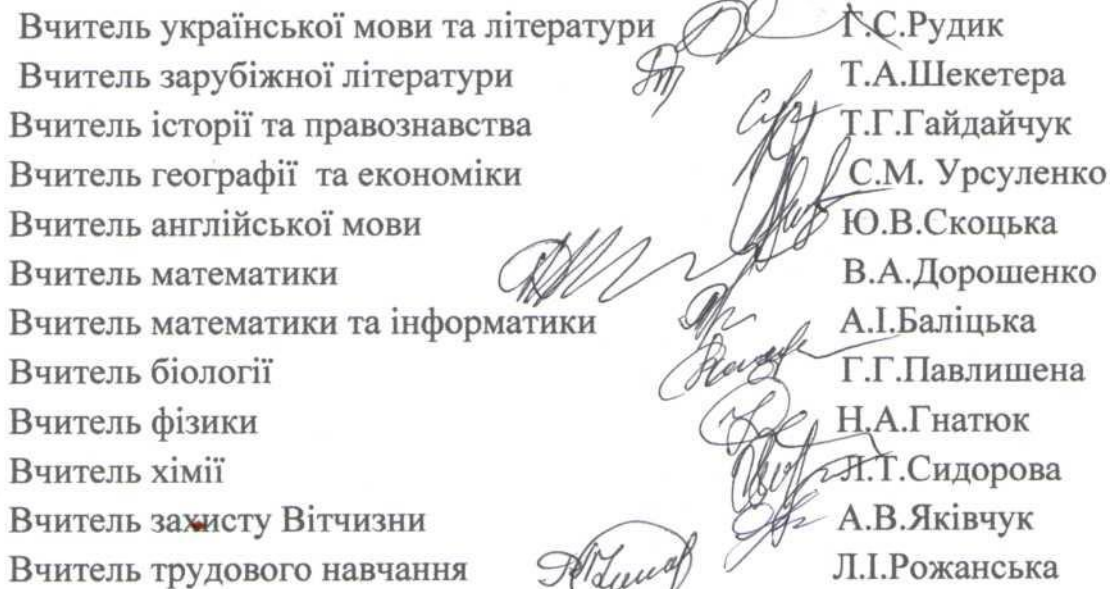 Вчитель української мови та літератури Г.С.Рудик
Вчитель зарубіжної літератури Т.А.Шекетера
Вчитель історії та правознавства Т.Г.Гайдайчук
Вчитель географії та економіки С.М. Урсуленко
Вчитель англійської мови Ю.В.Скоцька
Вчитель математики В.А.Дорошенко
Вчитель математики та інформатики А.І.Баліцька
Вчитель біології Г.Г.Павлишена
Вчитель фізики Н.А.Гнатюк
Вчитель хімії Л.Т.Сидорова
Вчитель захисту Вітчизни А.В.Яківчук
Вчитель трудового навчання Л.І.Рожанська